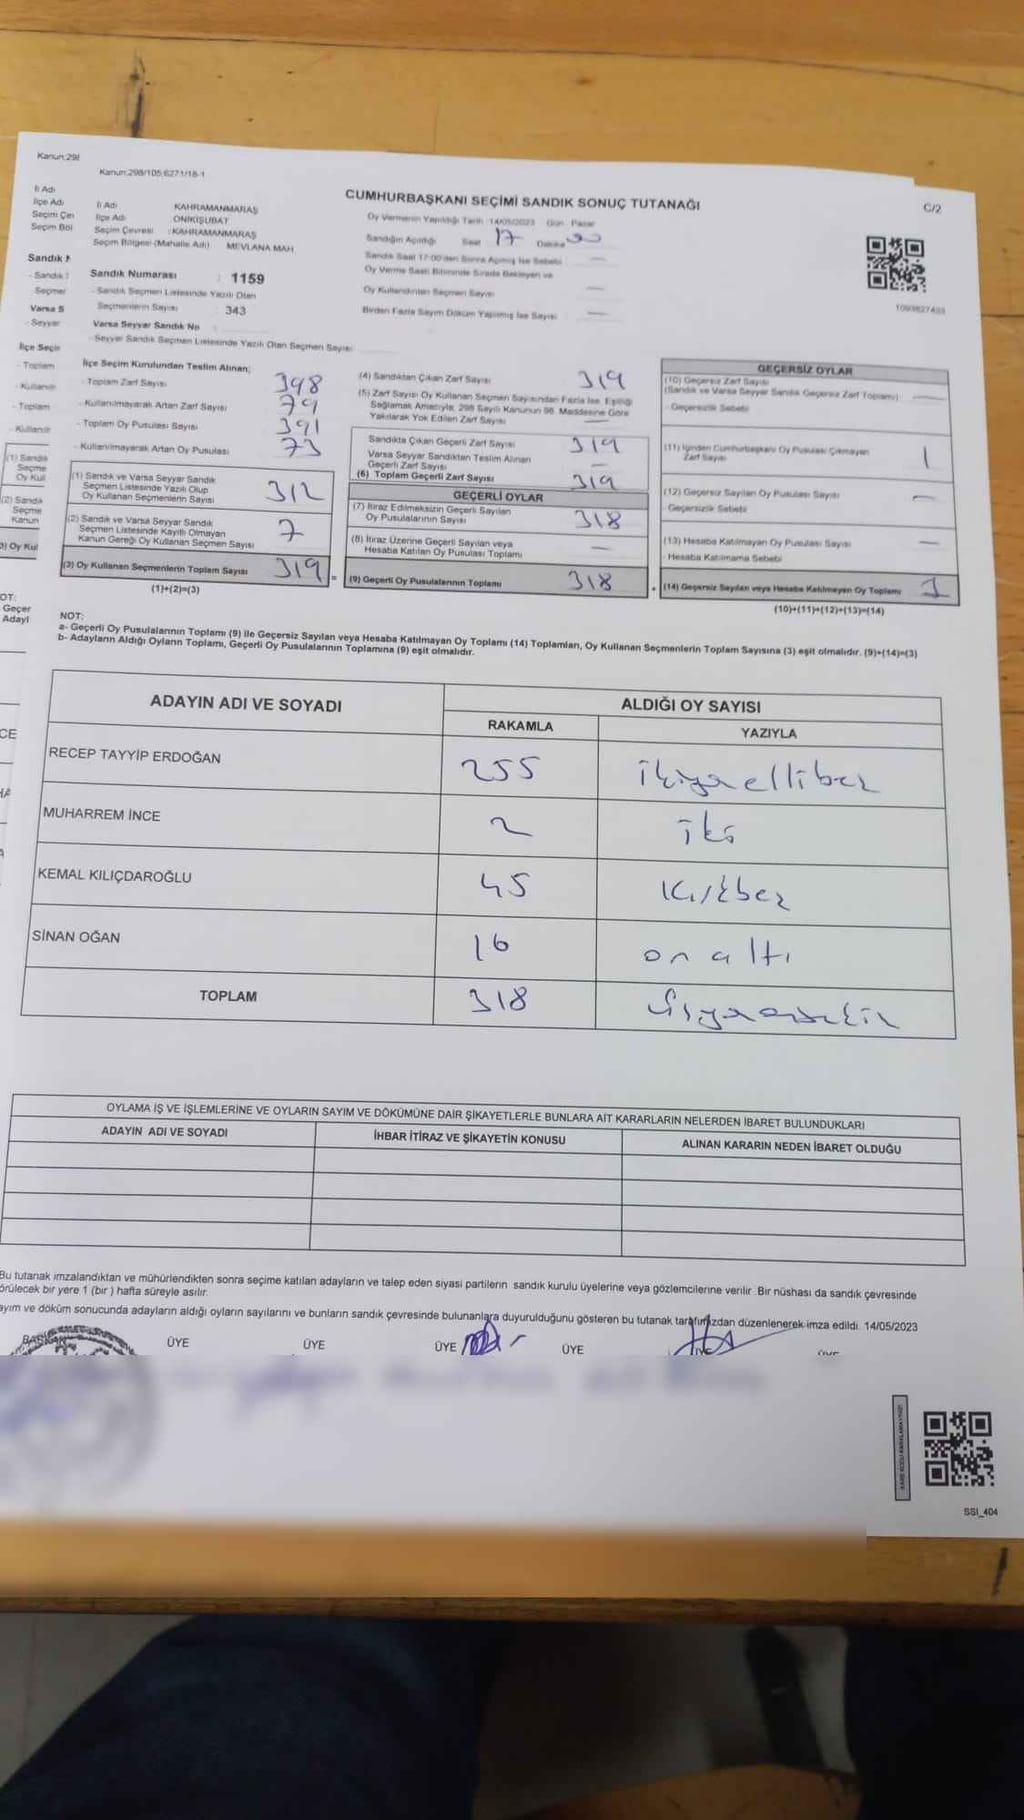 Kanun:298
Kanun:298/105;6271/18-1
CUMHURBAŞKANI SEÇİMİ SANDIK SONUÇ TUTANAĞI
C/2
İl Adı
İlçe Adı
Seçim Çev
Seçim Böl
İl Adı KAHRAMANMARAŞ
İlçe Adı ONİKİŞUBAT
Seçim Çevresi : KAHRAMANMARAŞ
Seçim Bölgesi (Mahalle Adı) MEVLANA MAH.
Oy Vermenin Yapıldığı Tarih :14/05/2023 Gün : Pazar
Sandığın Açıldığı Saat 17 Dakika 00
Sandık Saat 17:00'den Sonra Açılmış İse Sebebi
Oy Verme Saati Bitiminde Sırada Bekleyen ve
Oy Kullandırılan Seçmen Sayısı
Birden Fazla Sayım Döküm Yapılmış İse Sayısı
1093827433
Sandık Numarası : 1159
- Sandık Seçmen Listesinde Yazılı Olan
Seçmenlerin Sayısı : 343
Varsa Seyyar Sandık No :
- Seyyar Sandık Seçmen Listesinde Yazılı Olan Seçmen Sayısı
İlçe Seçim Kurulundan Teslim Alınan;
- Toplam Zarf Sayısı 398
- Kullanılmayarak Artan Zarf Sayısı 79
- Toplam Oy Pusulası Sayısı 391
- Kullanılmayarak Artan Oy Pusulası 73
(1) Sandık ve Varsa Seyyar Sandık
Seçmen Listesinde Yazılı Olup
Oy Kullanan Seçmenlerin Sayısı 312
(2) Sandık ve Varsa Seyyar Sandık
Seçmen Listesinde Kayıtlı Olmayan
Kanun Gereği Oy Kullanan Seçmen Sayısı 7
(3) Oy Kullanan Seçmenlerin Toplam Sayısı 319
(1)+(2)=(3)
(4) Sandıktan Çıkan Zarf Sayısı 319
(5) Zarf Sayısı Oy Kullanan Seçmen Sayısından Fazla İse, Eşitliği
Sağlamak Amacıyla, 298 Sayılı Kanunun 98. Maddesine Göre
Yakılarak Yok Edilen Zarf Sayısı —
Sandıkta Çıkan Geçerli Zarf Sayısı 319
Varsa Seyyar Sandıktan Teslim Alınan
Geçerli Zarf Sayısı —
(6) Toplam Geçerli Zarf Sayısı 319
GEÇERLİ OYLAR
(7) İtiraz Edilmeksizin Geçerli Sayılan
Oy Pusulalarının Sayısı 318
(8) İtiraz Üzerine Geçerli Sayılan veya
Hesaba Katılan Oy Pusulası Toplamı —
(9) Geçerli Oy Pusulalarının Toplamı 318
GEÇERSİZ OYLAR
(10) Geçersiz Zarf Sayısı
(Sandık ve Varsa Seyyar Sandık Geçersiz Zarf Toplamı) —
- Geçersizlik Sebebi
(11) İçinden Cumhurbaşkanı Oy Pusulası Çıkmayan
Zarf Sayısı 1
(12) Geçersiz Sayılan Oy Pusulası Sayısı —
- Geçersizlik Sebebi
(13) Hesaba Katılmayan Oy Pusulası Sayısı —
- Hesaba Katılmama Sebebi
(14) Geçersiz Sayılan veya Hesaba Katılmayan Oy Toplamı 1
(10)+(11)+(12)+(13)=(14)
NOT:
a- Geçerli Oy Pusulalarının Toplamı (9) ile Geçersiz Sayılan veya Hesaba Katılmayan Oy Toplamı (14) Toplamları, Oy Kullanan Seçmenlerin Toplam Sayısına (3) eşit olmalıdır. (9)+(14)=(3)
b- Adayların Aldığı Oyların Toplamı, Geçerli Oy Pusulalarının Toplamına (9) eşit olmalıdır.
ADAYIN ADI VE SOYADI ALDIĞI OY SAYISI
RAKAMLA YAZIYLA
RECEP TAYYİP ERDOĞAN 255 ikiyüzellibeş
MUHARREM İNCE 2 iki
KEMAL KILIÇDAROĞLU 45 Kırkbeş
SİNAN OĞAN 16 on altı
TOPLAM 318 üçyüzonsekiz
OYLAMA İŞ VE İŞLEMLERİNE VE OYLARIN SAYIM VE DÖKÜMÜNE DAİR ŞİKAYETLERLE BUNLARA AİT KARARLARIN NELERDEN İBARET BULUNDUKLARI
ADAYIN ADI VE SOYADI İHBAR İTİRAZ VE ŞİKAYETİN KONUSU ALINAN KARARIN NEDEN İBARET OLDUĞU
Bu tutanak imzalandıktan ve mühürlendikten sonra seçime katılan adayların ve talep eden siyasi partilerin sandık kurulu üyelerine veya gözlemcilerine verilir. Bir nüshası da sandık çevresinde
örülecek bir yere 1 (bir ) hafta süreyle asılır.
ayım ve döküm sonucunda adayların aldığı oyların sayılarını ve bunların sandık çevresinde bulunanlara duyurulduğunu gösteren bu tutanak tarafımızdan düzenlenerek imza edildi. 14/05/2023
ÜYE ÜYE ÜYE ÜYE
SSI_404